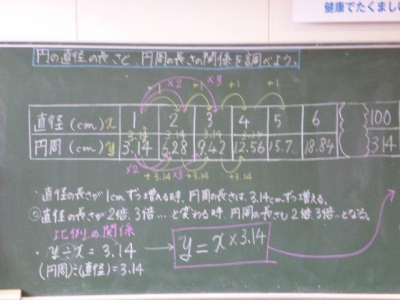 健康でたくまし
円の直径の長さと、円周の長さの関係を調べよう。
×2 ×3
+1 +1 +1 +1
直径(cm) x 1 2 3 4 5 6 100
3.14 3.14 3.14 3.14
円周(cm) y 3.14 6.28 9.42 12.56 15.7 18.84 314
×2 ×3
+3.14 +3.14 +3.14
・直径の長さが1cmずつ増える時、円周の長さは、3.14cmずつ増える。
直径の長さが2倍、3倍…と変わる時、円周の長さも2倍3倍…となる。
比例の関係
・y÷x=3.14 → y=x×3.14
(円周)÷(直径)=3.14